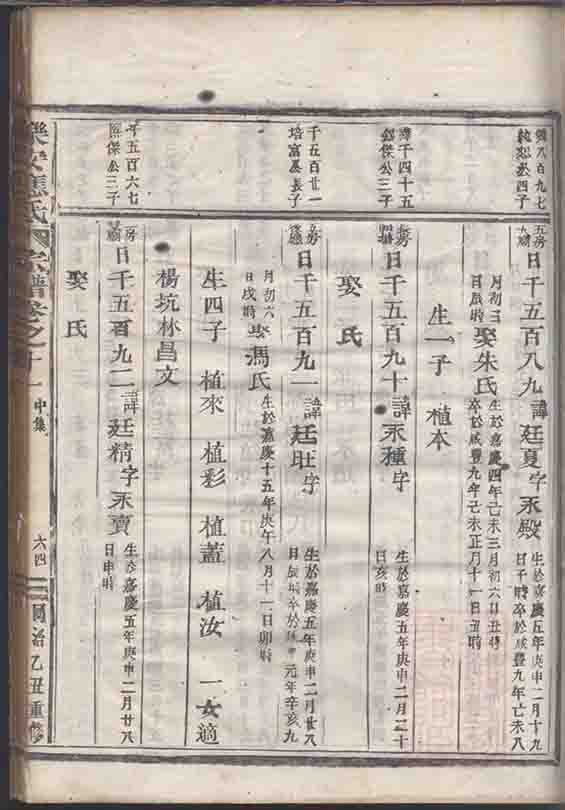 千八百九七
公四子
五房
日千五百八九諱廷夏字永殿
生於嘉慶五年庚申二月十九
日子時卒於咸豐九年己未八
月初三
日辰時
娶朱氏
生於嘉慶四年己未三月初六日丑時
卒於咸豐九年己未正月十一日丑時
生一子 植本
千四十五
傑公三子
日千五百九十諱永種字
生於嘉慶五年庚申二月二十
日亥時
娶 氏
千五百廿一
培富公長子
房
日千五百九一諱廷旺字
生於嘉慶五年庚申二月廿八
日辰時卒於 元年辛亥九
月初六
日戌時
娶馮氏
生於嘉慶十五年庚午八月十一日卯時
生四子 植來 植彩 植蓋 植汝 一女適
楊坑林昌文
千五百六七
熙傑公三子
房
日千五百九二諱廷精字永賣
生於嘉慶五年庚申二月廿八
日申時
娶 氏
樂安 氏 宗譜卷之十一 中集 六四 同治乙丑重修